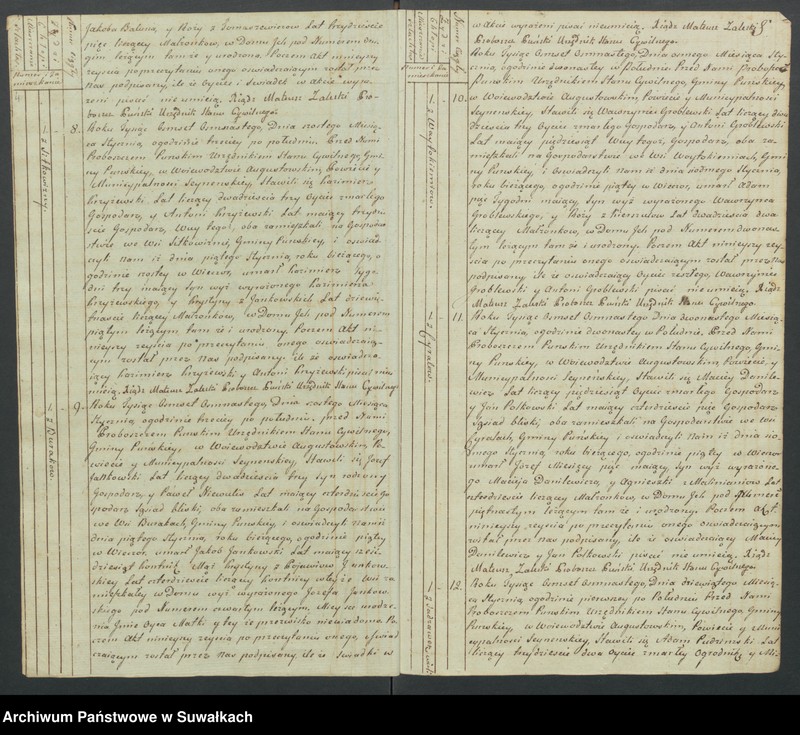 Jakoba Baluna, y Roży z Tomaszewiczow Lat trzydzieście
pięć liczący Małżonkow, w Domu Jch pod Numerem
gim leżącym tam że y urodzona. Poczem Akt ninieyszy
zeyścia po przeczytaniu onego oświadczaiącym został przez
nas podpisany, ile że Oyciec i Swiadek w akcie wyra-
żeni pisać nie umieią. Xiądz Mateusz Zaleski Pro-
boszcz Puński Urzędnik Stanu Cywilnego.
8. Roku Tysiąc Osmset Osmnastego, Dnia szostego Miesią-
1 z Sitkowizny
ca Stycznia ogodzinie trzeciey po południu. Przed Nami
Proboszczem Puńskim Urzędnikiem Stanu Cywilnego, Gmi-
ny Puńskiey, w Woiewództwie Augustowskim, Powiecie
y Municypalności Seyneńskiey, Stawili się Kazimierz
Krzyżewski Lat liczący dwadzieścia trzy Oyciec zmarłego
Gospodarz, y Antoni Krzyżewski Lat maiący trzydzie-
ście Gospodarz, Wuy tegoż, oba zamieszkali na Gospodar-
stwie we Wsi Sitkowiźnie, Gminy Puńskiey, i oświad-
czyli nam iż dnia piątego Stycznia, roku bieżącego, o
godzinie szostey w Wieczor, umarł Kazimierz tygo-
dni trzy maiący Syn wyż wyrażonego Kazimierza
Krzyżewskiego, y Krystyny z Jankowskich Lat dziewię-
tnaście liczący Małżonkow, w Domu Jch, pod Numerem
piątym leżącym tam że i urodzony. Poczem Akt ni-
nieyszy zeyścia po przeczytaniu onego oświadczaią-
cym został przez nas podpisany, ile że oświadcza-
iący Kazimierz Krzyżewski y Antoni Krzyżewski pisać nie
umieią. Xiądz Mateusz Zaleski Proboszcz Puński Urzędnik Stanu Cywilnego
9. Roku Tysiąc Osmset Osmnastego, Dnia szostego Miesiąca
1 z Burakow
Stycznia ogodzinie trzeciey po południu. przed Nami
Proboszczem Puńskim Urzędnikiem Stanu Cywilnego,
Gminy Puńskiey, w Woiewództwie Augustowskim Po-
wiecie y Municypalności Seyneńskiey, Stawili się Jozef
Jankowski Lat liczący dwadzieścia trzy Syn rodzony
Gospodarz, y Paweł Niewulis Lat maiący czterdzieści Go-
spodarz Sąsiad bliski, oba zamieszkali na Gospodarstwie
we Wsi Burakach, Gminy Puńskiey, i oświadczyli nam iż
dnia piątego Stycznia, roku bieżącego, ogodzinie piątey
w Wieczor, umarł Jakob Jankowski Lat maiący sześć-
dziesiąt
skiey Lat czterdzieście liczący
mieszkały w Domu wyż wyrażonego Jozefa Jankow-
skiego pod Numerem czwartym leżącym, Mieysce urodze-
nia Jmie Oyca Matki y tey że przezwisko niewiadome Po-
czem Akt ninieyszy zeyścia po przeczytaniu onego, oświad-
czaiącym został przez nas podpisany, ile że Swiadki w
8
w Akcie wyrażeni pisać nieumieią. Xiądz Mateusz Zaleski
Proboszcz Puński Urzędnik Stanu Cywilnego.
Roku Tysiąc Osmset Osmnastego, Dnia osmego Miesiąca Sty-
cznia, ogodzinie dwonastey w Południe Przed Nami Proboszczem
Puńskim Urzędnikiem Stanu Cywilnego, Gminy Puńskiey,
10. w Woiewództwie Augustowskim, Powiecie y Municypalności
1 z Woytokiemiow.
Seyneńskiey, Stawili się Wawrzyniec Groblewski Lat liczący dwa-
dzieścia trzy Oyciec zmarłego Gospodarz, y Antoni Groblewski
Lat maiący pięćdziesiąt Wuy tegoż, Gospodarz, oba za-
mieszkali na Gospodarstwie we Wsi Woytokiemiach, Gmi-
ny Puńskiey, i oświadczyli nam iż dnia siodmego Stycznia,
roku bieżącego, ogodzinie piątey w Wieczor, umarł Adam
pięć tygodni maiący, Syn wyż wyrażonego Wawrzyńca
Groblewskiego, y Roży z Lat dwadzieścia dwa
liczący Małżonkow, w Domu Jch pod Numerem dwonas-
tym leżącym tam że i urodzony. Poczem Akt ninieyszy zey-
ścia po przeczytaniu onego oświadczaiącym został przez nas
podpisany, ile że oświadczaiący Oyciec zeszłego, Wawrzyniec
Groblewski y Antoni Groblewski pisać nieumieią. Xiądz
Mateusz Zaleski Proboszcz Puński Urzędnik Stanu Cywilnego.
11. Roku Tysiąc Osmset Osmnastego Dnia dwonastego Miesią-
1 z Cyralow.
ca Stycznia, ogodzinie dwonastey w Południe. Przed Nami
Proboszczem Puńskim Urzędnikiem Stanu Cywilnego, Gmi-
ny Puńskiey, w Woiewództwie Augustowskim Powiecie, y
Municypalności Seyneńskiey, Stawili się Maciey Danile-
wicz Lat liczący pięćdziesiąt Oyciec zmarłego Gospodarz
y Jan Polkowski Lat maiący czterdzieście pięć Gospodarz
Sąsiad bliski, oba zamieszkali na Gospodarstwie we Wsi
Cyralach, Gminy Puńskiey, i oświadczyli nam iż dnia
Stycznia, roku bieżącego, ogodzinie piątey w Wieczor
umarł Jozef Miesięcy pięć maiący, Syn wyż wyrażone-
go Macieja Danilewicza, y Agnieszki z Lat
czterdzieście liczący Małżonkow, w Domu Jch pod Numerem
piętnastym leżącym tam że i urodzony. Poczem Akt
ninieyszy zeyścia po przeczytaniu onego oświadczaiącym
został przez nas podpisany, ile że oświadczaiący Maciey
Danilewicz y Jan Polkowski pisać nie umieią. Xiądz
Mateusz Zaleski Proboszcz Puński Urzędnik Stanu Cywilnego
12. Roku Tysiąc Osmset Osmnastego, Dnia dziewiątego Miesią-
ca Stycznia, ogodzinie pierwszey po Południu Przed Nami
Proboszczem Puńskim Urzędnikiem Stanu Cywilnego, Gminy
Puńskiey, w Woiewództwie Augustowskim, Powiecie y Muni-
cypalności Seyneńskiey, Stawili się Adam Pudzimski Lat
liczący trzydzieście dwa Oyciec zmarłey Ogrodnik, y Mi-
Archiwum Państwowe w Suwałkach